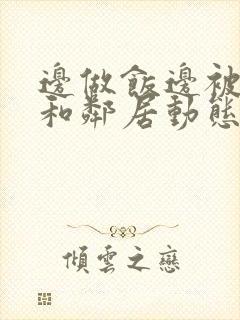 邊做飯邊被
和鄰居動態
傾雲之戀